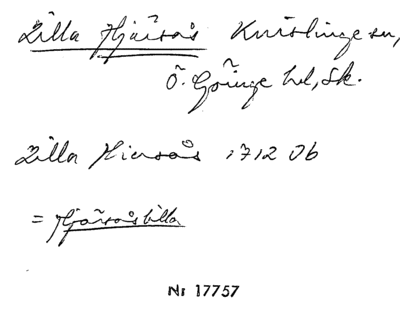 Lilla Hjärsås Knislinge sn,
Ö. Göinge hd, Sk.
Lilla Hiersås 1712 Jb
= Hjärsåslilla
Nr 17757